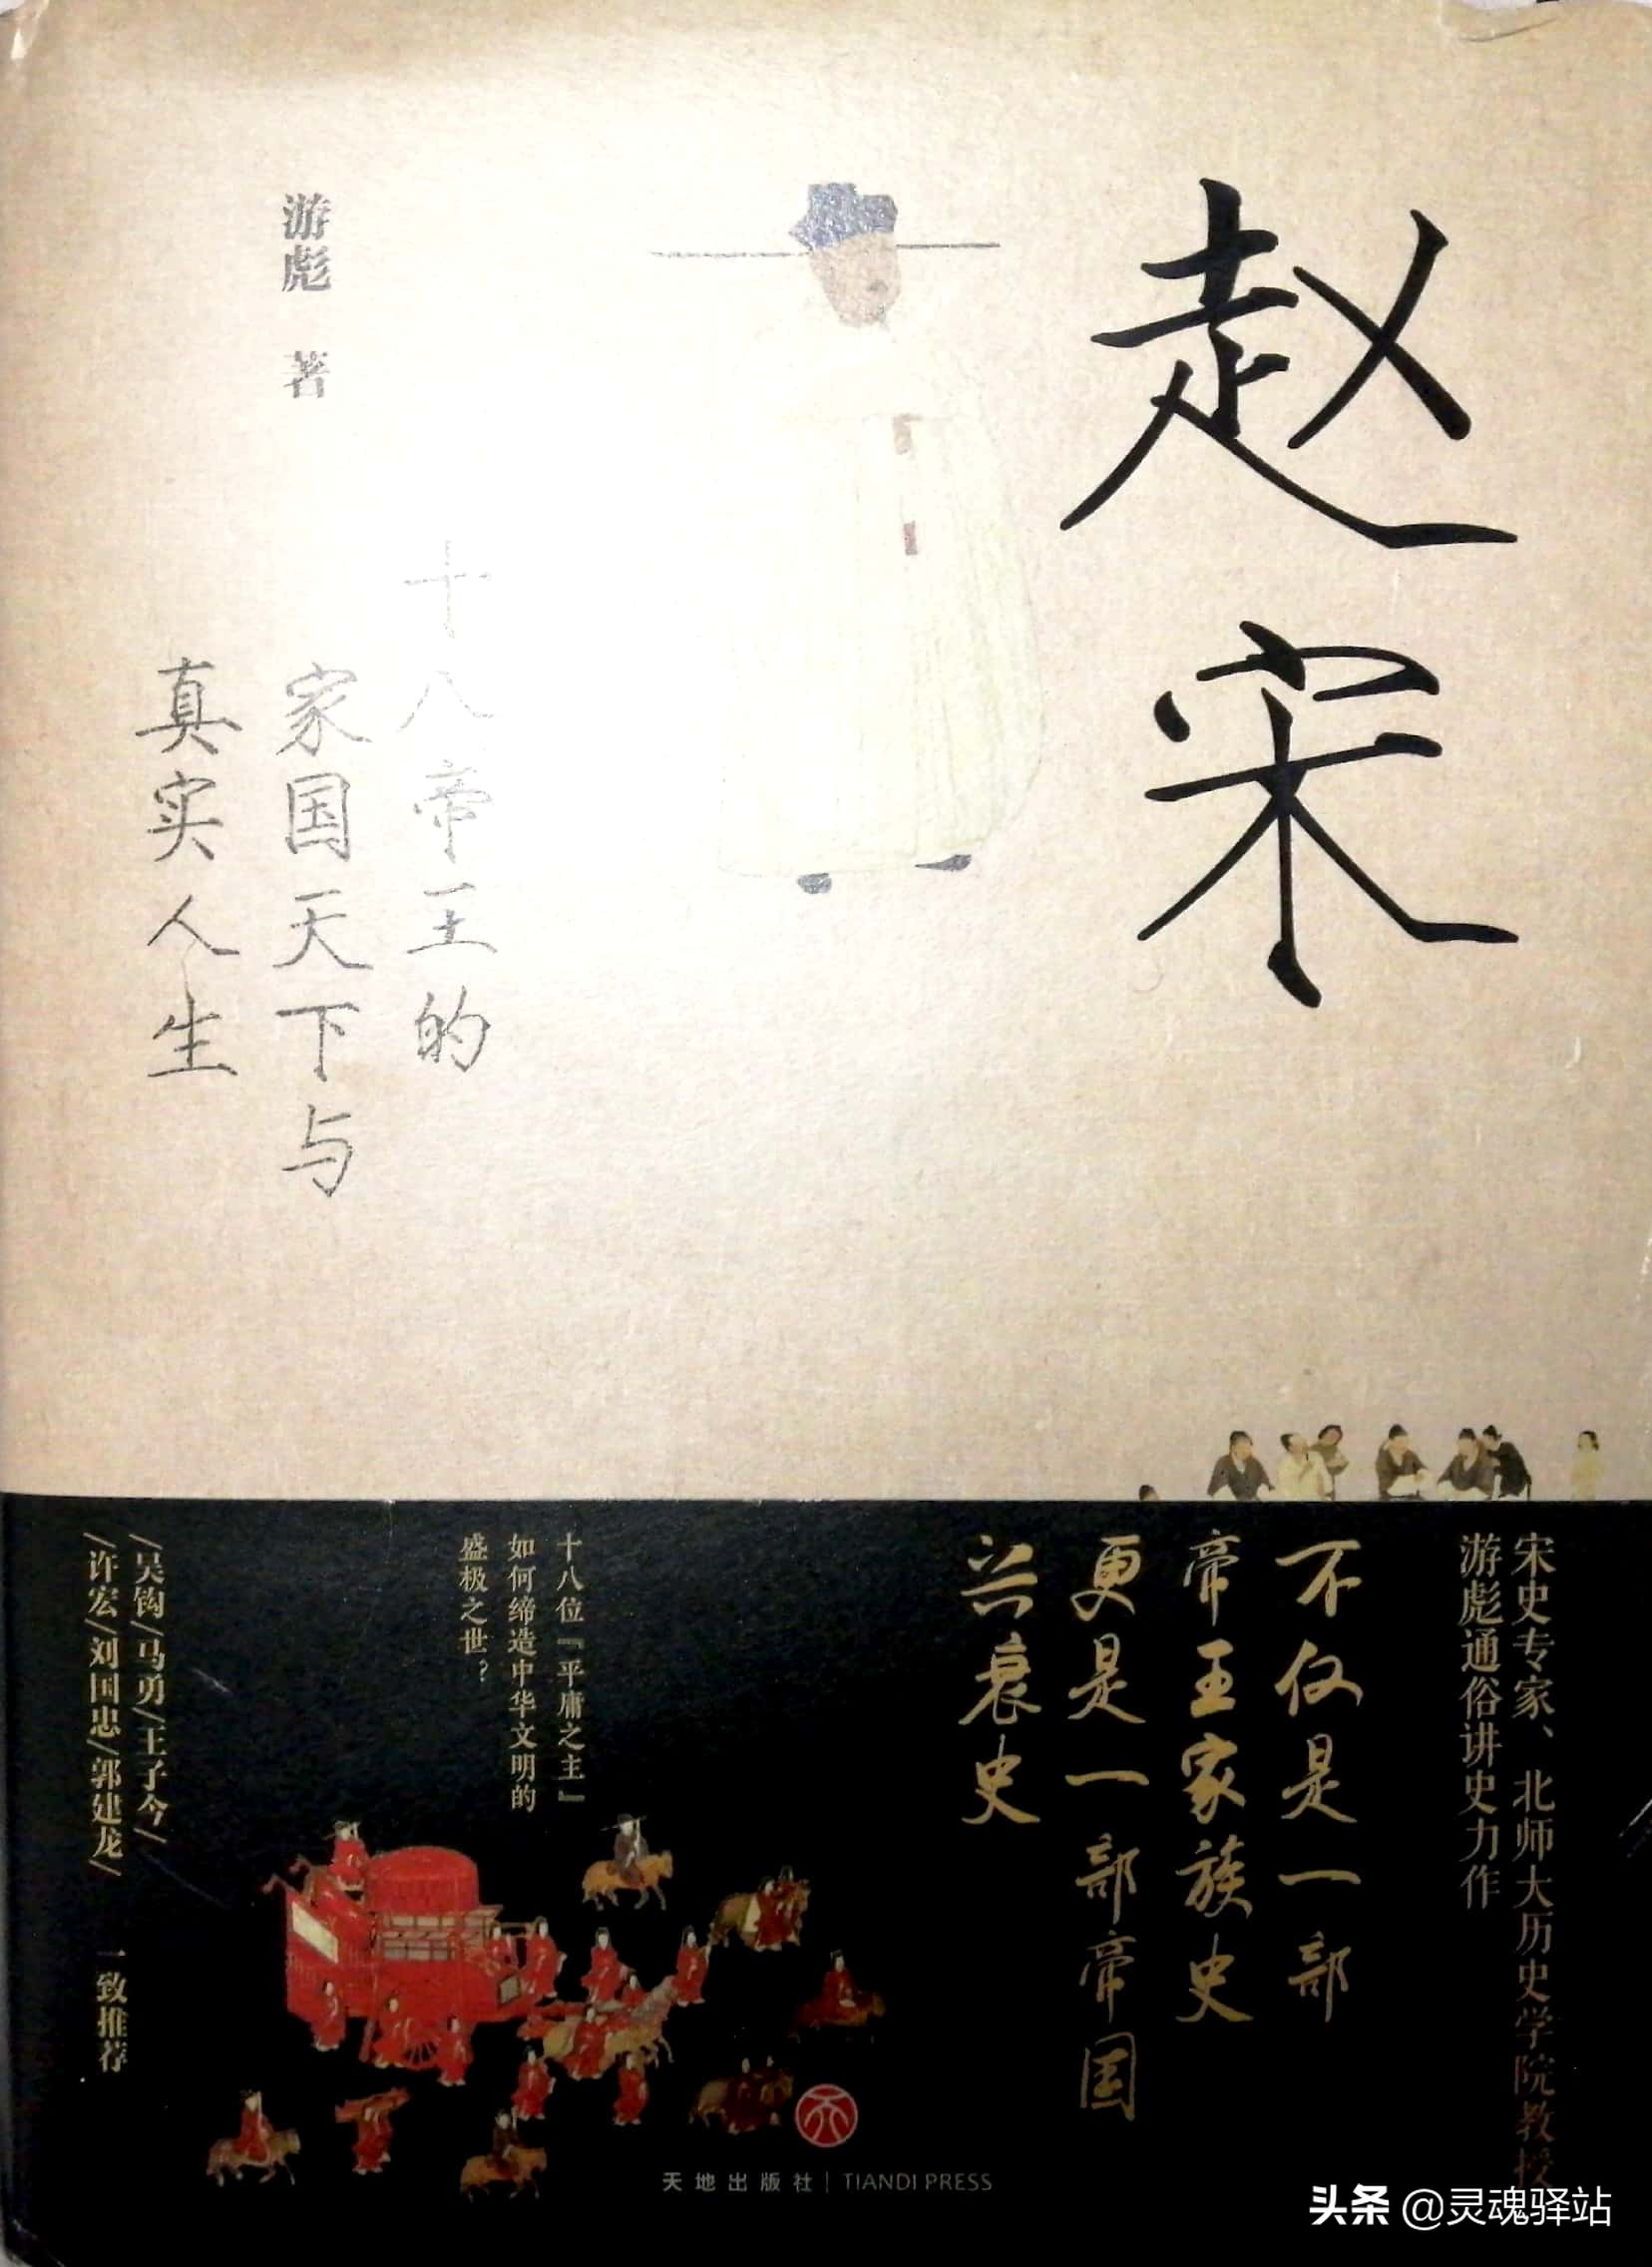 赵宋
十八帝王的
家国天下与
真实人生
游彪 著
宋史专家、北师大历史学院教授
游彪通俗讲史力作
不仅是一部
帝王家族史
更是一部帝国
兴衰史
十八位『平庸之主』
如何缔造中华文明的
盛极之世？
/吴钩/马勇/王子今/
/许宏/刘国忠/郭建龙/
一致推荐
天地出版社 | TIANDI PRESS
头条 @灵魂驿站